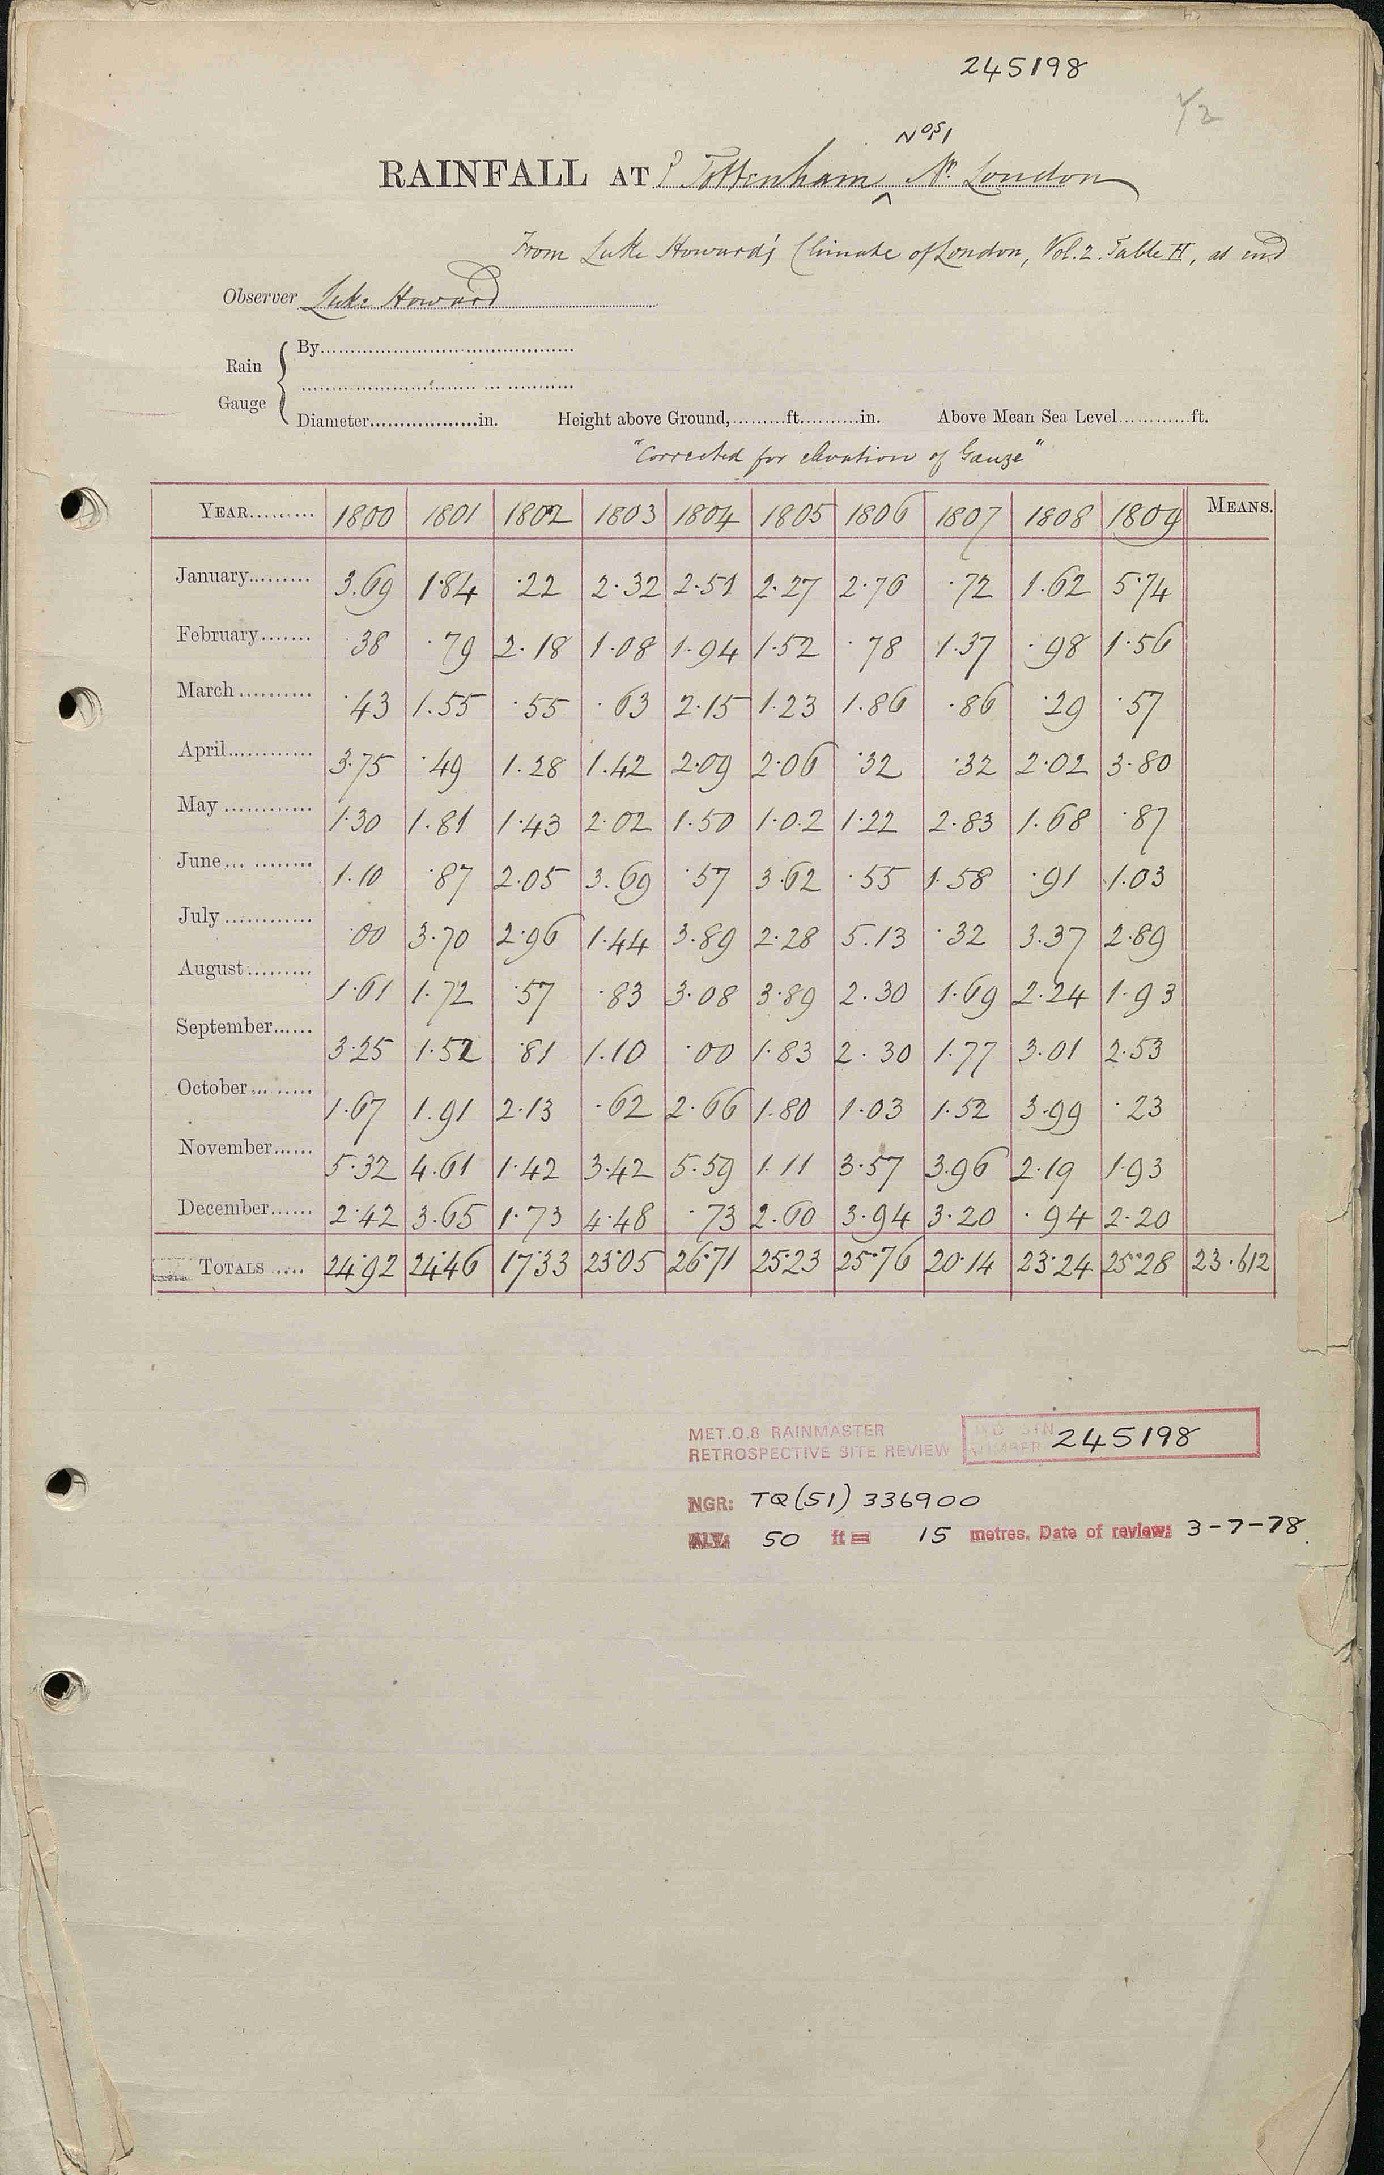 245198
1/2
Nos 1
RAINFALL AT ? Tottenham ^ Nr. London
From Luke Howard's Climate of London, Vol. 2. Table H, at end
Observer Luke Howard
Rain Gauge { By
Diameter in. Height above Ground, ft. in. Above Mean Sea Level ft.
"Corrected for elevation of Gauge"
YEAR 1800 1801 1802 1803 1804 1805 1806 1807 1808 1809 MEANS.
January 3.69 1.84 .22 2.32 2.51 2.27 2.76 .72 1.62 5.74
February .38 .79 2.18 1.08 1.94 1.52 .78 1.37 .98 1.56
March .43 1.55 .55 .63 2.15 1.23 1.86 .86 .29 .57
April 3.75 .49 1.28 1.42 2.09 2.06 .32 .32 2.02 3.80
May 1.30 1.81 1.43 2.02 1.50 1.02 1.22 2.83 1.68 .87
June 1.10 .87 2.05 3.69 .57 3.62 .55 1.58 .91 1.03
July .00 3.70 2.96 1.44 3.89 2.28 5.13 .32 3.37 2.89
August 1.61 1.72 .57 .83 3.08 3.89 2.30 1.69 2.24 1.93
September 3.25 1.52 .81 1.10 .00 1.83 2.30 1.77 3.01 2.53
October 1.67 1.91 2.13 .62 2.66 1.80 1.03 1.52 3.99 .23
November 5.32 4.61 1.42 3.42 5.59 1.11 3.57 3.96 2.19 1.93
December 2.42 3.65 1.73 4.48 .73 2.60 3.94 3.20 .94 2.20
TOTALS 24.92 24.46 17.33 23.05 26.71 25.23 25.76 20.14 23.24 25.28 23.612
MET.O.8 RAINMASTER
RETROSPECTIVE SITE REVIEW NUMBER 245198
NGR: TQ(51) 336900
ALT: 50 ft = 15 metres. Date of review: 3-7-78.